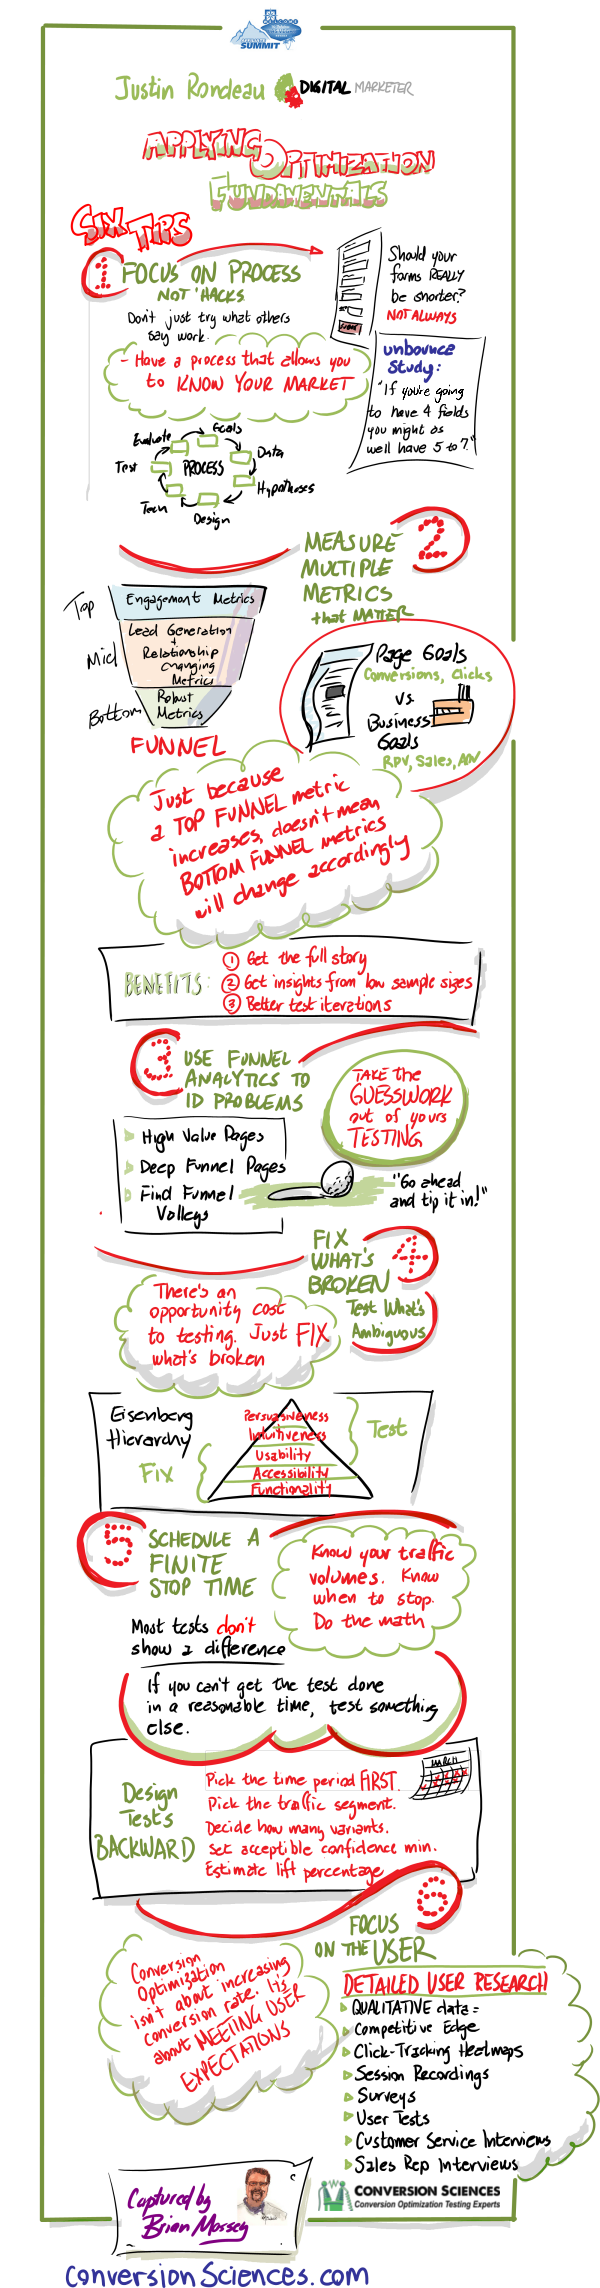 SUMMIT
Justin Rondeau
DIGITAL MARKETER
APPLYING
OPTIMIZATION
FUNDAMENTALS
SIX TIPS
1 FOCUS ON PROCESS
NOT 'HACKS
Don't just try what others
say work.
- Have a process that allows you
to KNOW YOUR MARKET
Should your
forms REALLY
be shorter?
NOT ALWAYS
unbounce
Study:
"If you're going
to have 4 fields
you might as
well have 5 to 7."
PROCESS
Goals
Data
Hypotheses
Design
Tech
Test
Evaluate
2
MEASURE
MULTIPLE
METRICS
that MATTER
Top
Engagement Metrics
Mid
Lead Generation
+
Relationship
Changing
Metrics
Bottom
Robust
Metrics
FUNNEL
Page Goals
Conversions, Clicks
vs.
Business
Goals
RPV, Sales, AOV
Just because
a TOP FUNNEL metric
increases, doesn't mean
BOTTOM FUNNEL metrics
will change accordingly
BENEFITS:
1 Get the full story
2 Get insights from low sample sizes
3 Better test iterations
3 USE FUNNEL
ANALYTICS TO
ID PROBLEMS
TAKE the
GUESSWORK
out of yours
TESTING
High Value Pages
Deep Funnel Pages
Find Funnel
Valleys
"Go ahead
and tip it in!"
4
FIX
WHAT'S
BROKEN
Test What's
Ambiguous
There's an
opportunity cost
to testing. Just FIX
what's broken
Eisenberg
Hierarchy
Fix
Persuasiveness
Intuitiveness
Usability
Accessibility
Functionality
Test
5 SCHEDULE A
FINITE
STOP TIME
Know your traffic
volumes. Know
when to stop.
Do the math
Most tests don't
show a difference
If you can't get the test done
in a reasonable time, test something
else.
Design
Tests
BACKWARD
Pick the time period FIRST.
Pick the traffic segment.
Decide how many variants.
Set acceptible confidence min.
Estimate lift percentage
MARCH
6
FOCUS
ON THE USER
Conversion
Optimization
isn't about increasing
conversion rate. It's
about MEETING USER
EXPECTATIONS
DETAILED USER RESEARCH
QUALITATIVE data=
Competitive Edge
Click-Tracking Heatmaps
Session Recordings
Surveys
User Tests
Customer Service Interviews
Sales Rep Interviews
Captured by
Brian Massey
CONVERSION SCIENCES
Conversion Optimization Testing Experts
ConversionSciences.com